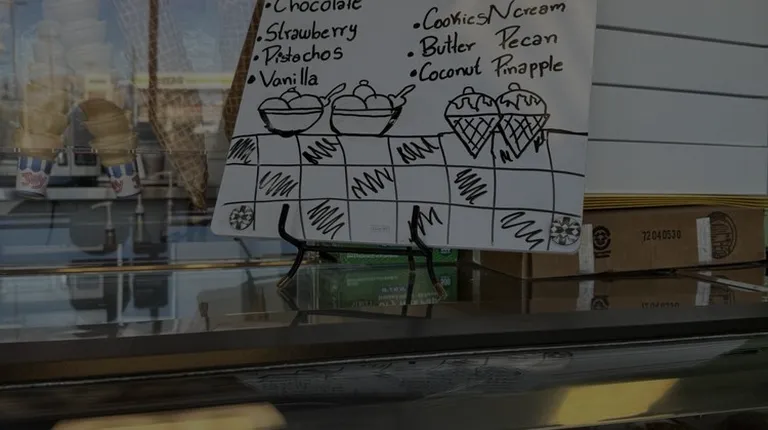 • Chocolate
• Strawberry
• Pistachos
• Vanilla
• CookiesNcream
• Butter Pecan
• Coconut Pinapple
72040530